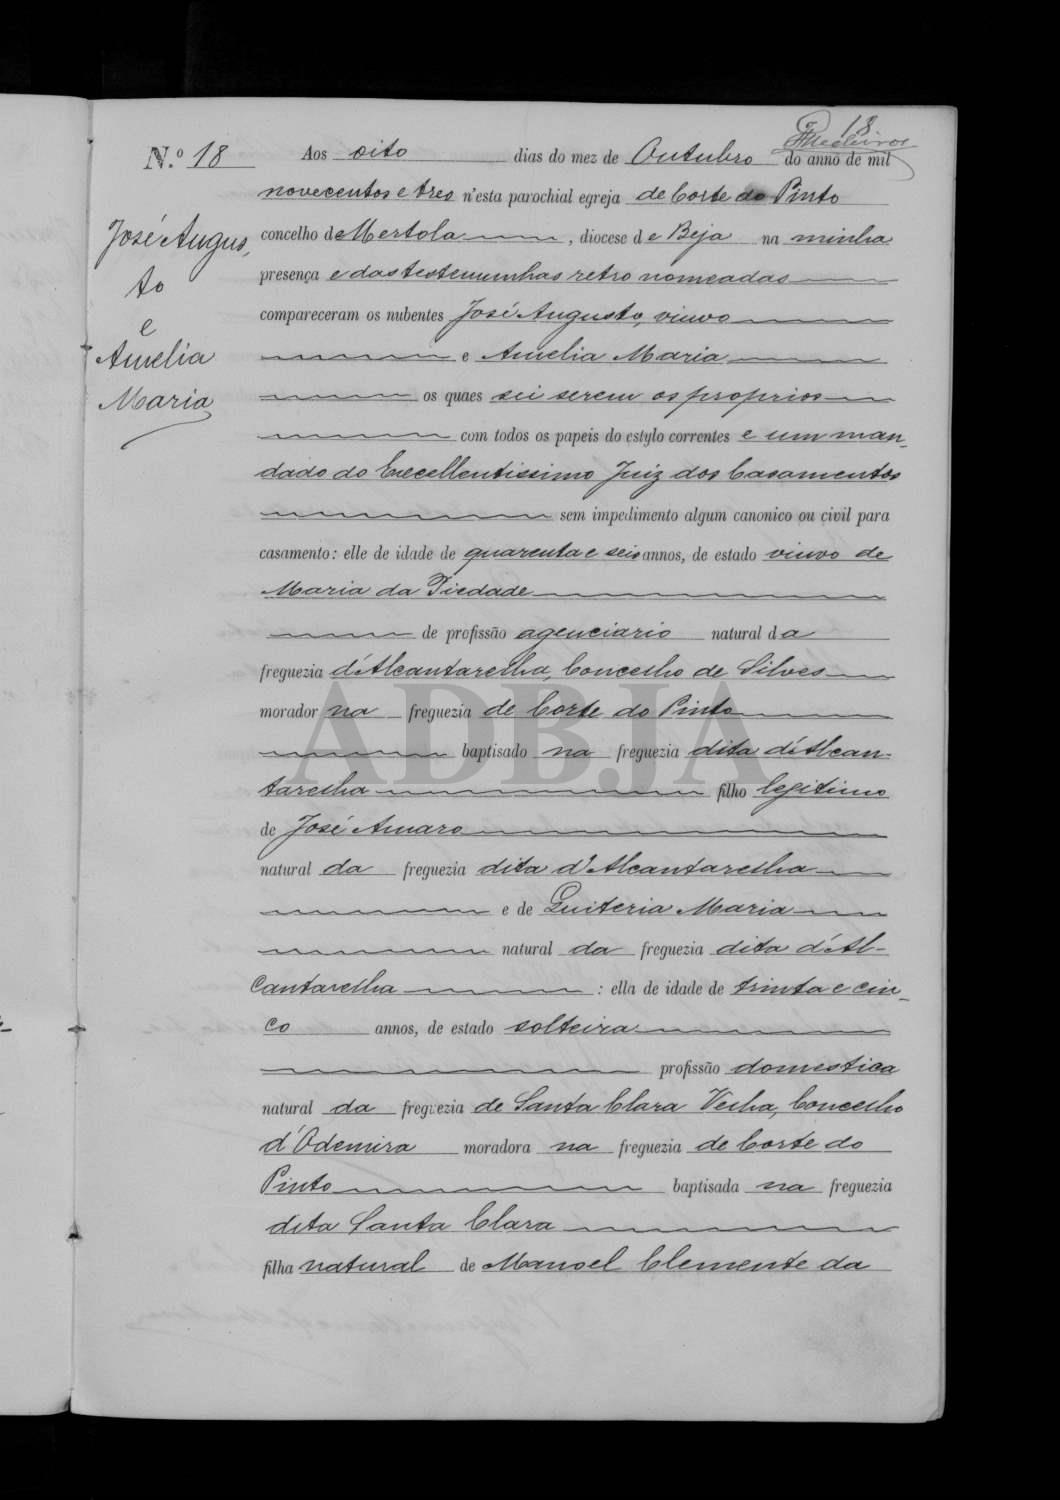 18
Medeiros
N.º 18
José Augus,
to
e
Amelia
Maria
Aos oito dias do mez de Outubro do anno de mil
novecentos e tres n'esta parochial egreja de Corte do Pinto
concelho de Mertola, diocese de Beja na minha
presença e das testemunhas retro nomeadas
compareceram os nubentes José Augusto, viuvo
e Amelia Maria
os quaes sei serem os proprios
com todos os papeis do estylo correntes e um man-
dado do Excellentissimo Juiz dos Casamentos
sem impedimento algum canonico ou civil para
casamento: elle de idade de quarenta e seis annos, de estado viuvo de
Maria da Piedade
de profissão agenciario natural da
freguezia d'Alcantarilha, Concelho de Silves
morador na freguezia de Corte do Pinto
baptisado na freguezia dita d'Alcan-
tarilha filho legitimo
de José Amaro
natural da freguezia dita d'Alcantarilha
e de Quiteria Maria
natural da freguezia dita d'Al-
cantarilha : ella de idade de trinta e cin-
co annos, de estado solteira
profissão domestica
natural da freguezia de Santa Clara Velha, Concelho
d'Odemira moradora na freguezia de Corte do
Pinto baptisada na freguezia
dita Santa Clara
filha natural de Manoel Clemente da
ADBJA